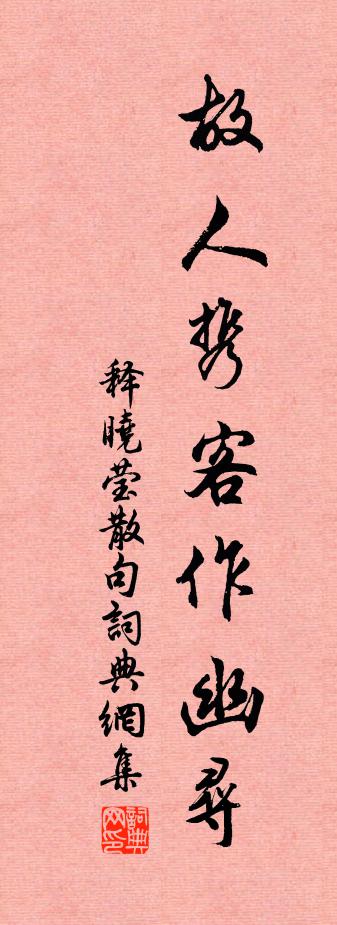 故人携客作幽尋
释曉莹散句詞典網集
詞典网印